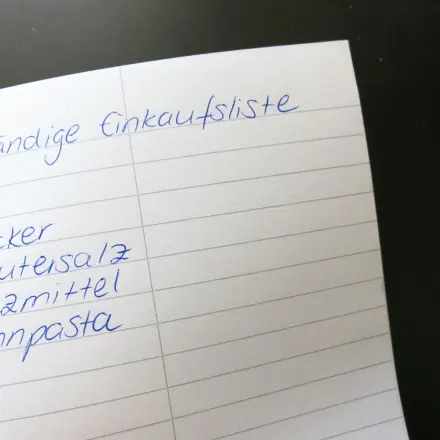 ändige Einkaufsliste
cker
utersalz
zmittel
hnpasta